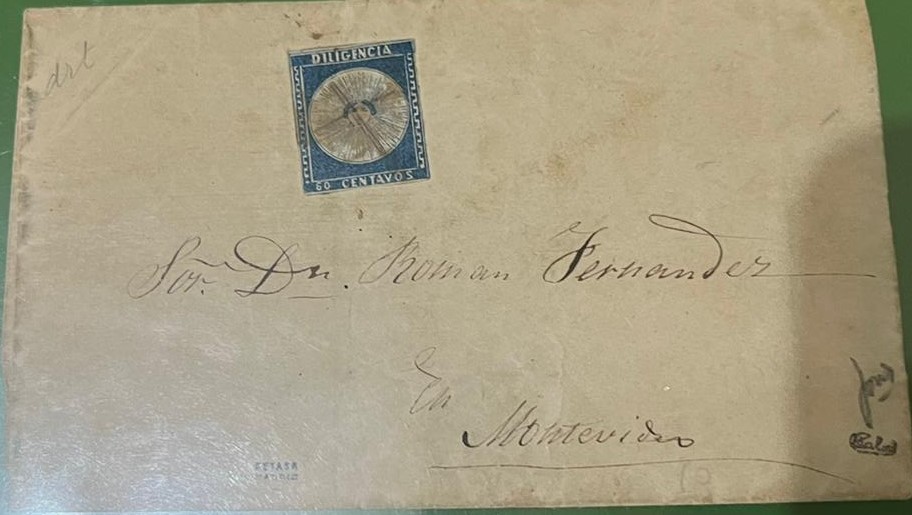 drt
DILIGENCIA
60 CENTAVOS
Sor. Dn. Roman Fernandez
En
Montevideo